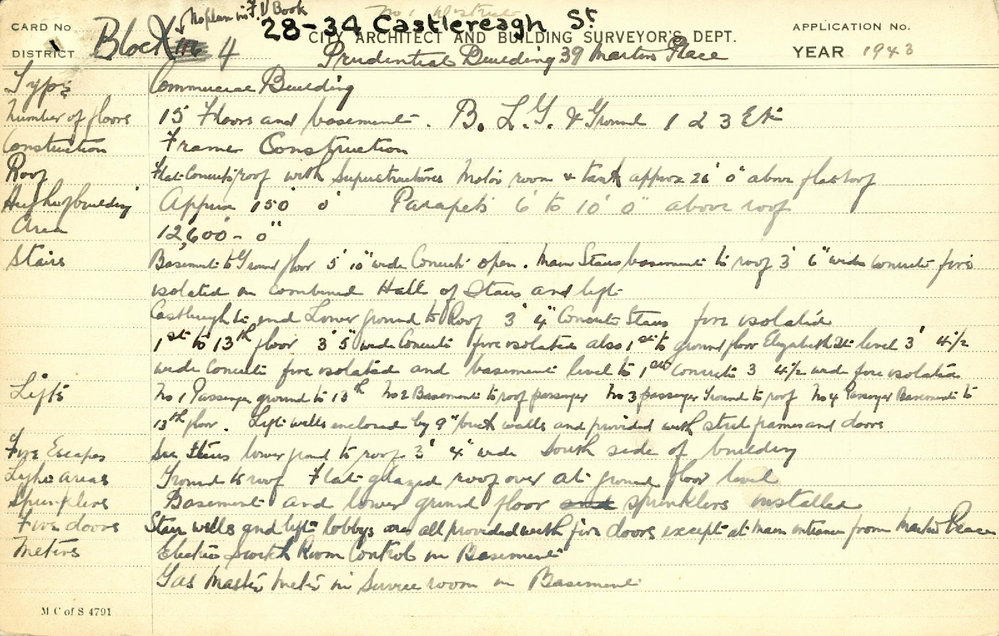 No plan in F.U Book
No 1 District
28-34 Castlereagh St.
CARD No.
CITY ARCHITECT AND BUILDING SURVEYOR'S DEPT.
APPLICATION No.
DISTRICT Block 4
Prudential Building 39 Martin Place
YEAR 1943
Type Commercial Building
Number of floors 15 Floors and basement. B. L.G. & Ground 1 2 3 Etc
Construction Framed Construction
Roof Flat Concrete roof with Superstructures Motor room & tank approx 26' 0" above flat roof
Height of building Approx 150' 0" Parapets 6' to 10' 0" above roof
Area 12,600'-0"
Stairs Basement to Ground floor 5' 10" wide Concrete open. Main Stairs basement to roof 3' 6" wide concrete fire
isolated in combined Hall of Stairs and lift
Castlereagh St end Lower ground to Roof 3' 4" Concrete Stairs fire isolated
1st to 13th floor 3' 5" wide Concrete fire isolated also 1st to ground floor Elizabeth St level 3' 4½
wide Concrete fire isolated and basement level to 1st Concrete 3 4½ wide fire isolated
Lifts No 1 Passenger ground to 13th No 2 Basement to roof passenger No 3 passenger Ground to roof No 4 Passenger Basement to
13th floor. Lift wells enclosed by 9" brick walls and provided with steel frames and doors
Fire Escapes See Stairs lower ground to roof 3' 4" wide South side of building
Light areas Ground to roof Flat glazed roof over at ground floor level
Sprinklers Basement and lower ground floor and sprinklers installed
Fire doors Stair wells and lift lobbys are all provided with fire doors except at main entrance from Martin Place
Meters Electric Switch Room Control in Basement
Gas Master meter in Service room in Basement
M C of S 4791